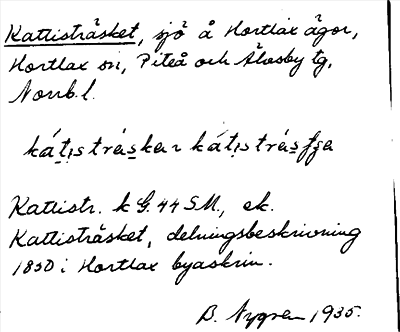 Kattisträsket, sjö å Hortlax ägor,
Hortlax sn, Piteå och Älvsby tg,
Norrb. l.
kát̩is trás̠ka
Kattistr. k G. 44 SM., ek.
Kattisträsket, delningsbeskrivning
1850 i Hortlax byaskrin.
B. Nygren 1935.